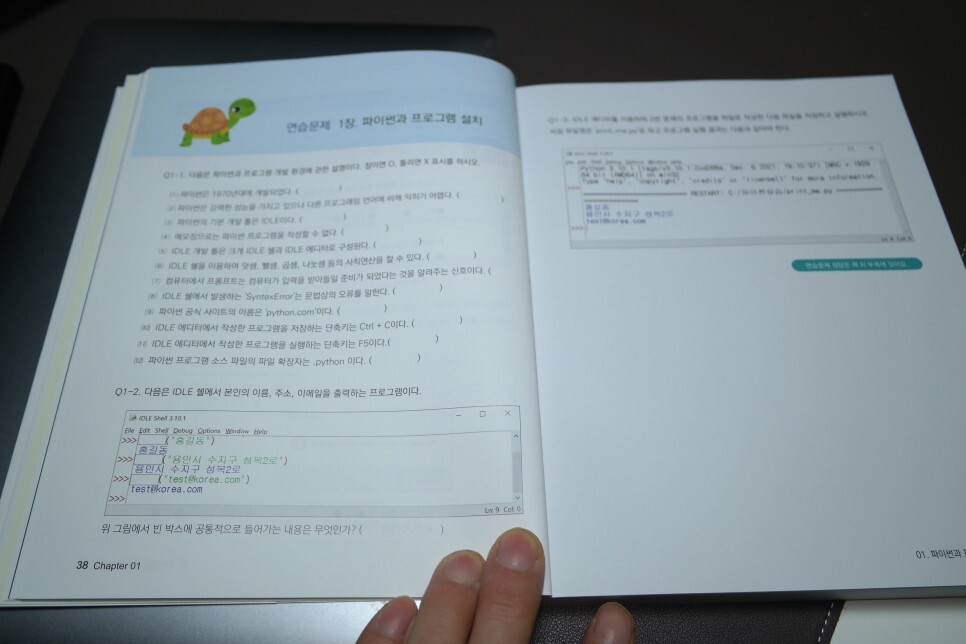 연습문제 1장. 파이썬과 프로그램 설치
Q1-1. 다음은 파이썬과 프로그램 개발 환경에 관한 설명이다. 참이면 O, 틀리면 X 표시를 하시오.
(1) 파이썬은 1970년대에 개발되었다. ( )
(2) 파이썬은 강력한 성능을 가지고 있으나 다른 프로그래밍 언어에 비해 익히기 어렵다. ( )
(3) 파이썬의 기본 개발 툴은 IDLE이다. ( )
(4) 메모장으로는 파이썬 프로그램을 작성할 수 없다. ( )
(5) IDLE 개발 툴은 크게 IDLE 쉘과 IDLE 에디터로 구성된다. ( )
(6) IDLE 쉘을 이용하여 덧셈, 뺄셈, 곱셈, 나눗셈 등의 사칙연산을 할 수 있다. ( )
(7) 컴퓨터에서 프롬프트는 컴퓨터가 입력을 받아들일 준비가 되었다는 것을 알려주는 신호이다. (
(8) IDLE 쉘에서 발생하는 'SyntexError'는 문법상의 오류를 말한다. ( )
(9) 파이썬 공식 사이트의 이름은 'python.com'이다. ( )
(10) IDLE 에디터에서 작성한 프로그램을 저장하는 단축키는 Ctrl + C이다. ( )
(11) IDLE 에디터에서 작성한 프로그램을 실행하는 단축키는 F5이다.( )
(12) 파이썬 프로그램 소스 파일의 파일 확장자는 .python 이다. ( )
Q1-2. 다음은 IDLE 쉘에서 본인의 이름, 주소, 이메일을 출력하는 프로그램이다.
IDLE Shell 3.10.1
File Edit Shell Debug Options Window Help
>>> ("홍길동")
홍길동
>>> ("용인시 수지구 성복2로")
용인시 수지구 성복2로
>>> ("test@korea.com")
test@korea.com
>>>
Ln: 9 Col: 0
위 그림에서 빈 박스에 공통적으로 들어가는 내용은 무엇인가? ( )
38 Chapter 01
Q1-3. IDLE 에디터를 이용하여 2번 문제의 프로그램을 파일로 작성한 다음 파일을 저장하고 실행하시오.
파일명은 'print_me.py'로 하고 프로그램 실행 결과는 다음과 같아야 한다.
File Edit Shell Debug Options Window Help
Python 3.10.1 (tags/v3.10.1:2cd268a, Dec 6 2021, 19:10:37) [MSC v.1929
64 bit (AMD64)] on win32
Type "help", "copyright", "credits" or "license()" for more information.
>>>
RESTART: C:/파이썬실습/print_me.py
홍길동
용인시 수지구 성복2로
test@korea.com
>>>
연습문제 정답은 책 뒤 부록에 있어요
01. 파이썬과